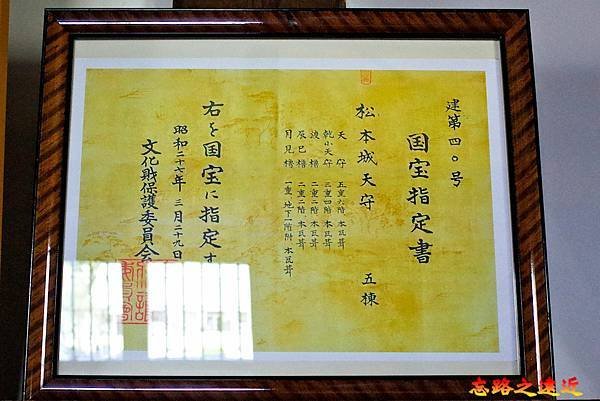 建第四〇号
国宝指定書
松本城天守 五棟
天守 五重六階 本瓦葺
乾小天守 三重四階 本瓦葺
渡櫓 二重二階 本瓦葺
辰巳櫓 二重二階 本瓦葺
月見櫓 一重 地下一階附 本瓦葺
右を国宝に指定す
昭和二十七年 三月二十九日
文化財保護委員会
忘路之遠近